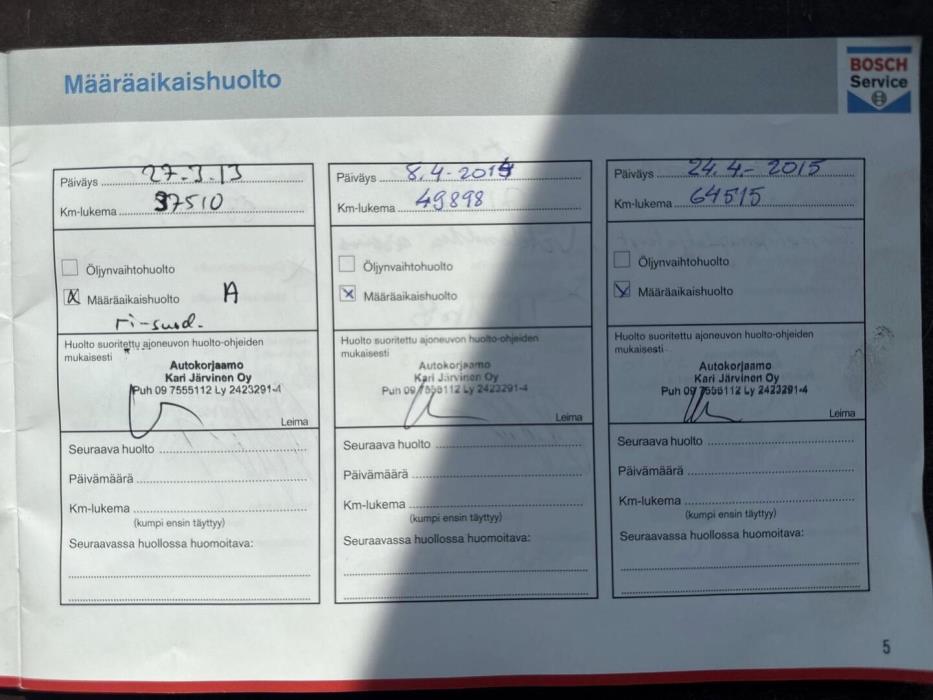 Määräaikaishuolto
BOSCH
Service
Päiväys 27.3.13
Km-lukema 37510
Öljynvaihtohuolto
X Määräaikaishuolto A
ri-suod.
Huolto suoritettu ajoneuvon huolto-ohjeiden
mukaisesti
Autokorjaamo
Kari Järvinen Oy
Puh 09 7555112 Ly 2423291-4
Leima
Seuraava huolto
Päivämäärä
Km-lukema
(kumpi ensin täyttyy)
Seuraavassa huollossa huomoitava:
Päiväys 8.4-2014
Km-lukema 49898
Öljynvaihtohuolto
X Määräaikaishuolto
Huolto suoritettu ajoneuvon huolto-ohjeiden
mukaisesti
Autokorjaamo
Kari Järvinen Oy
Puh 09 7555112 Ly 2423291-4
Leima
Seuraava huolto
Päivämäärä
Km-lukema
(kumpi ensin täyttyy)
Seuraavassa huollossa huomoitava:
Päiväys 24.4.-2015
Km-lukema 64515
Öljynvaihtohuolto
X Määräaikaishuolto
Huolto suoritettu ajoneuvon huolto-ohjeiden
mukaisesti
Autokorjaamo
Kari Järvinen Oy
Puh 09 7555112 Ly 2423291-4
Leima
Seuraava huolto
Päivämäärä
Km-lukema
(kumpi ensin täyttyy)
Seuraavassa huollossa huomoitava:
5